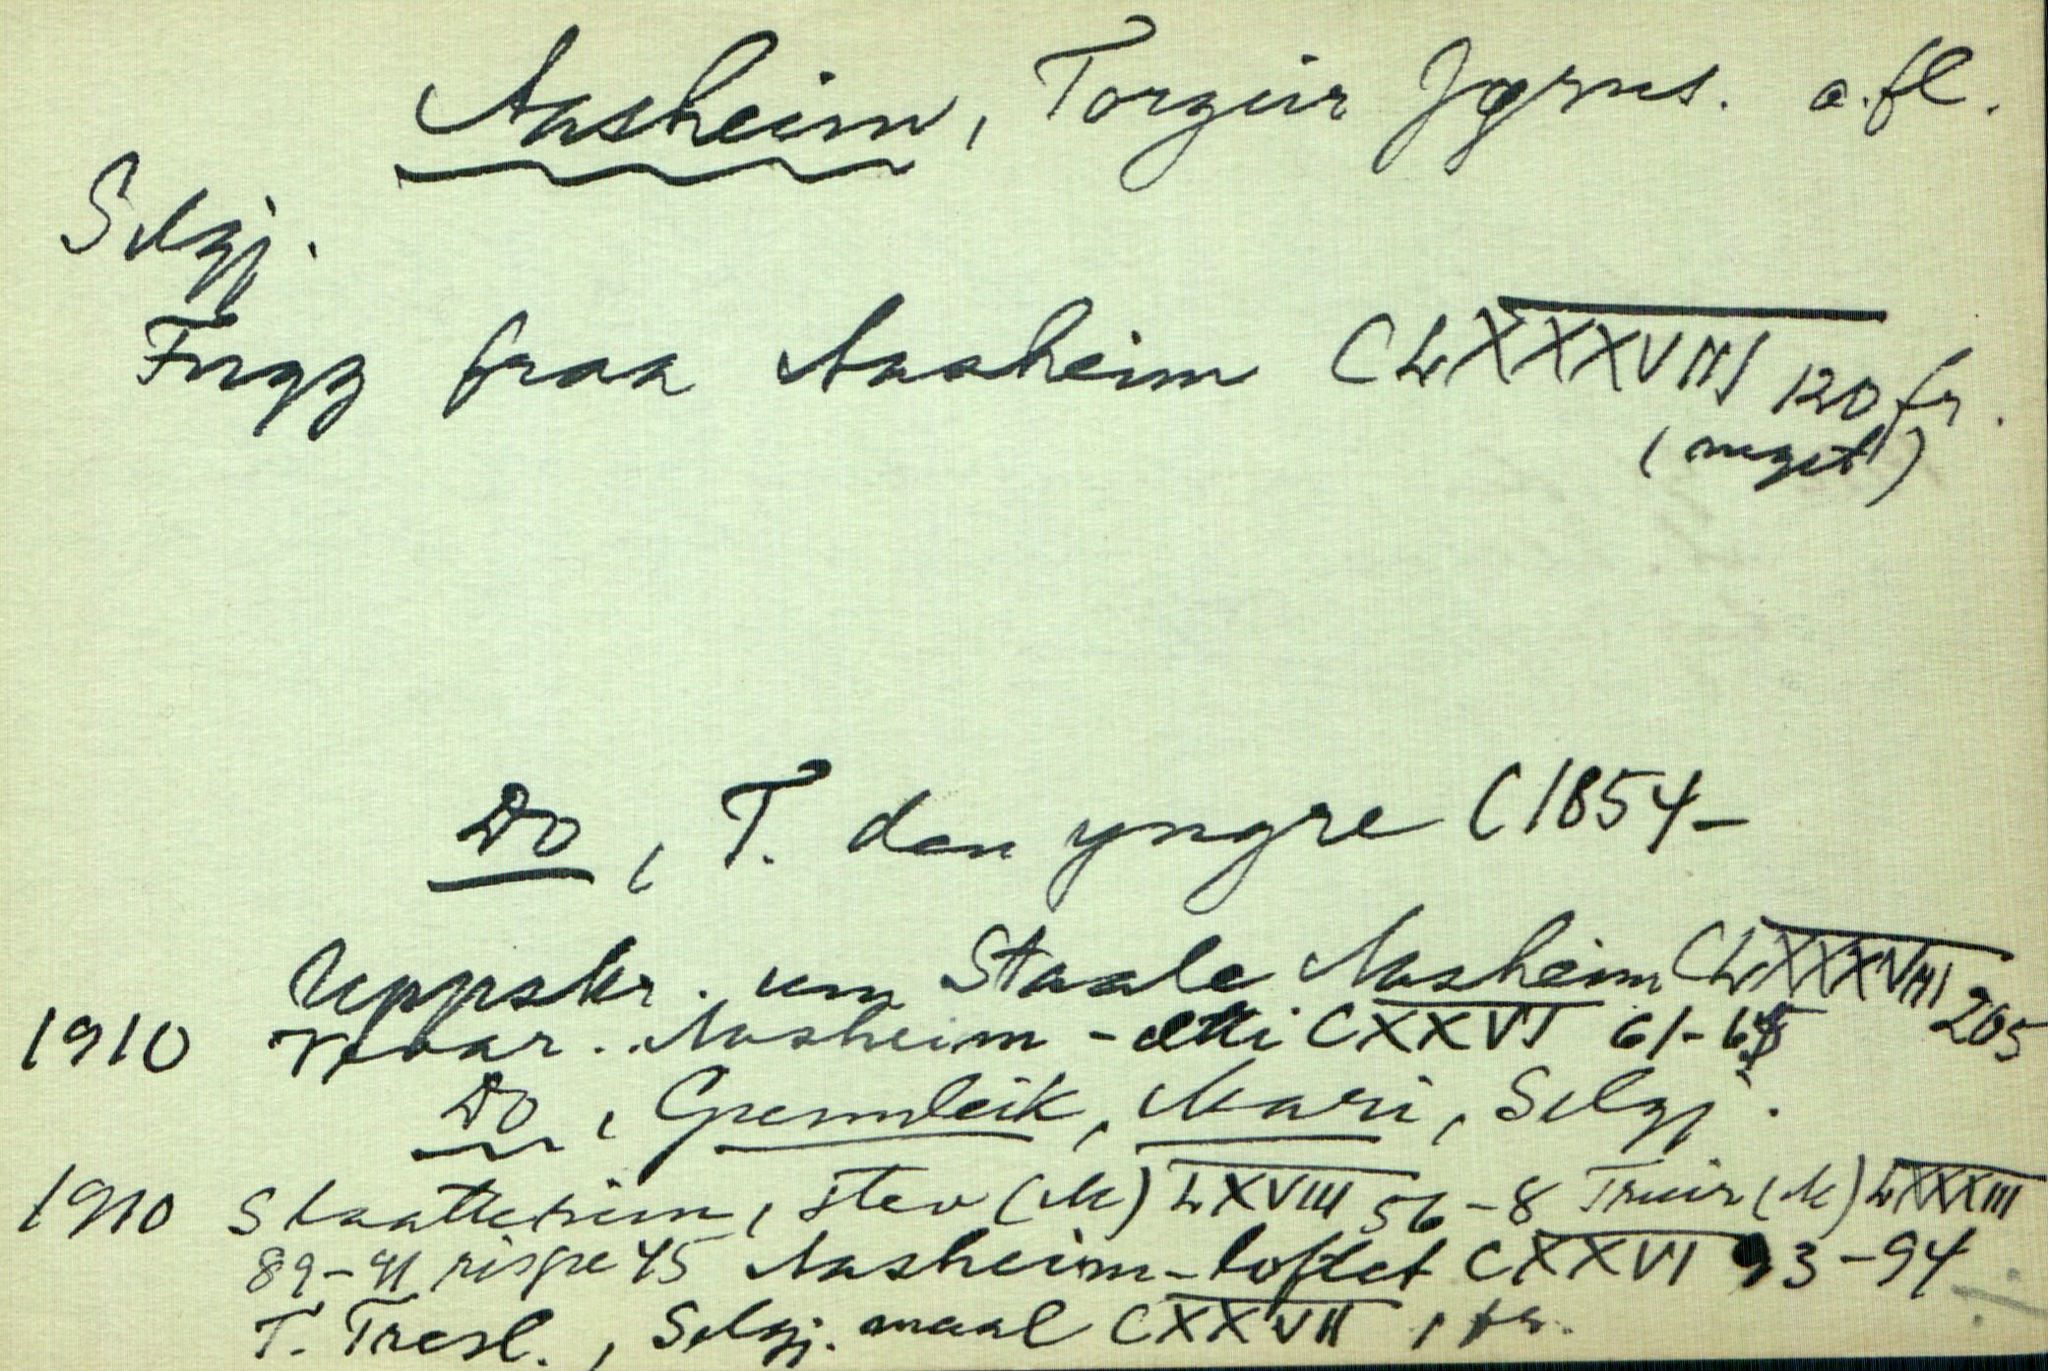 Aasheim, Torgeir Jørns. o.fl.
Selgj.
Frygg fraa Aasheim CLXXXVIII 120 fr.
(myset)
Do, T. den yngre (1854-
Uppskr. um Staale Aasheim CLXXXVIII 205
1910 Aasheim-ætti CXXVI 61-65
Do, Grennleik, Mari, Selgj.
1910 Slaatterim, stev (M) LXVIII 56-8 Truir (M) LXXXIII
89-91 rispe 45 Aasheim-loftet CXXVI 93-94
T. Tresl., Selgj. maal CXXVII 1 fr.